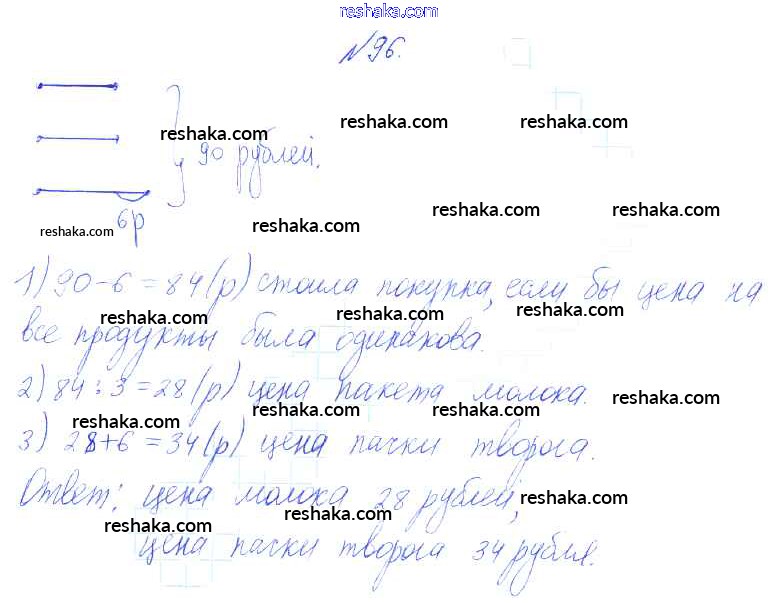 reshaka.com
№96.
reshaka.com reshaka.com reshaka.com
90 рублей.
6р
reshaka.com reshaka.com reshaka.com reshaka.com
1) 90-6=84(р) стоила покупка, если бы цена на
reshaka.com reshaka.com reshaka.com
все продукты была одинакова.
2) 84:3=28(р) цена пакета молока.
reshaka.com reshaka.com reshaka.com reshaka.com
3) 28+6=34(р) цена пачки творога.
Ответ: цена молока 28 рублей,
reshaka.com reshaka.com reshaka.com
цена пачки творога 34 рубля.